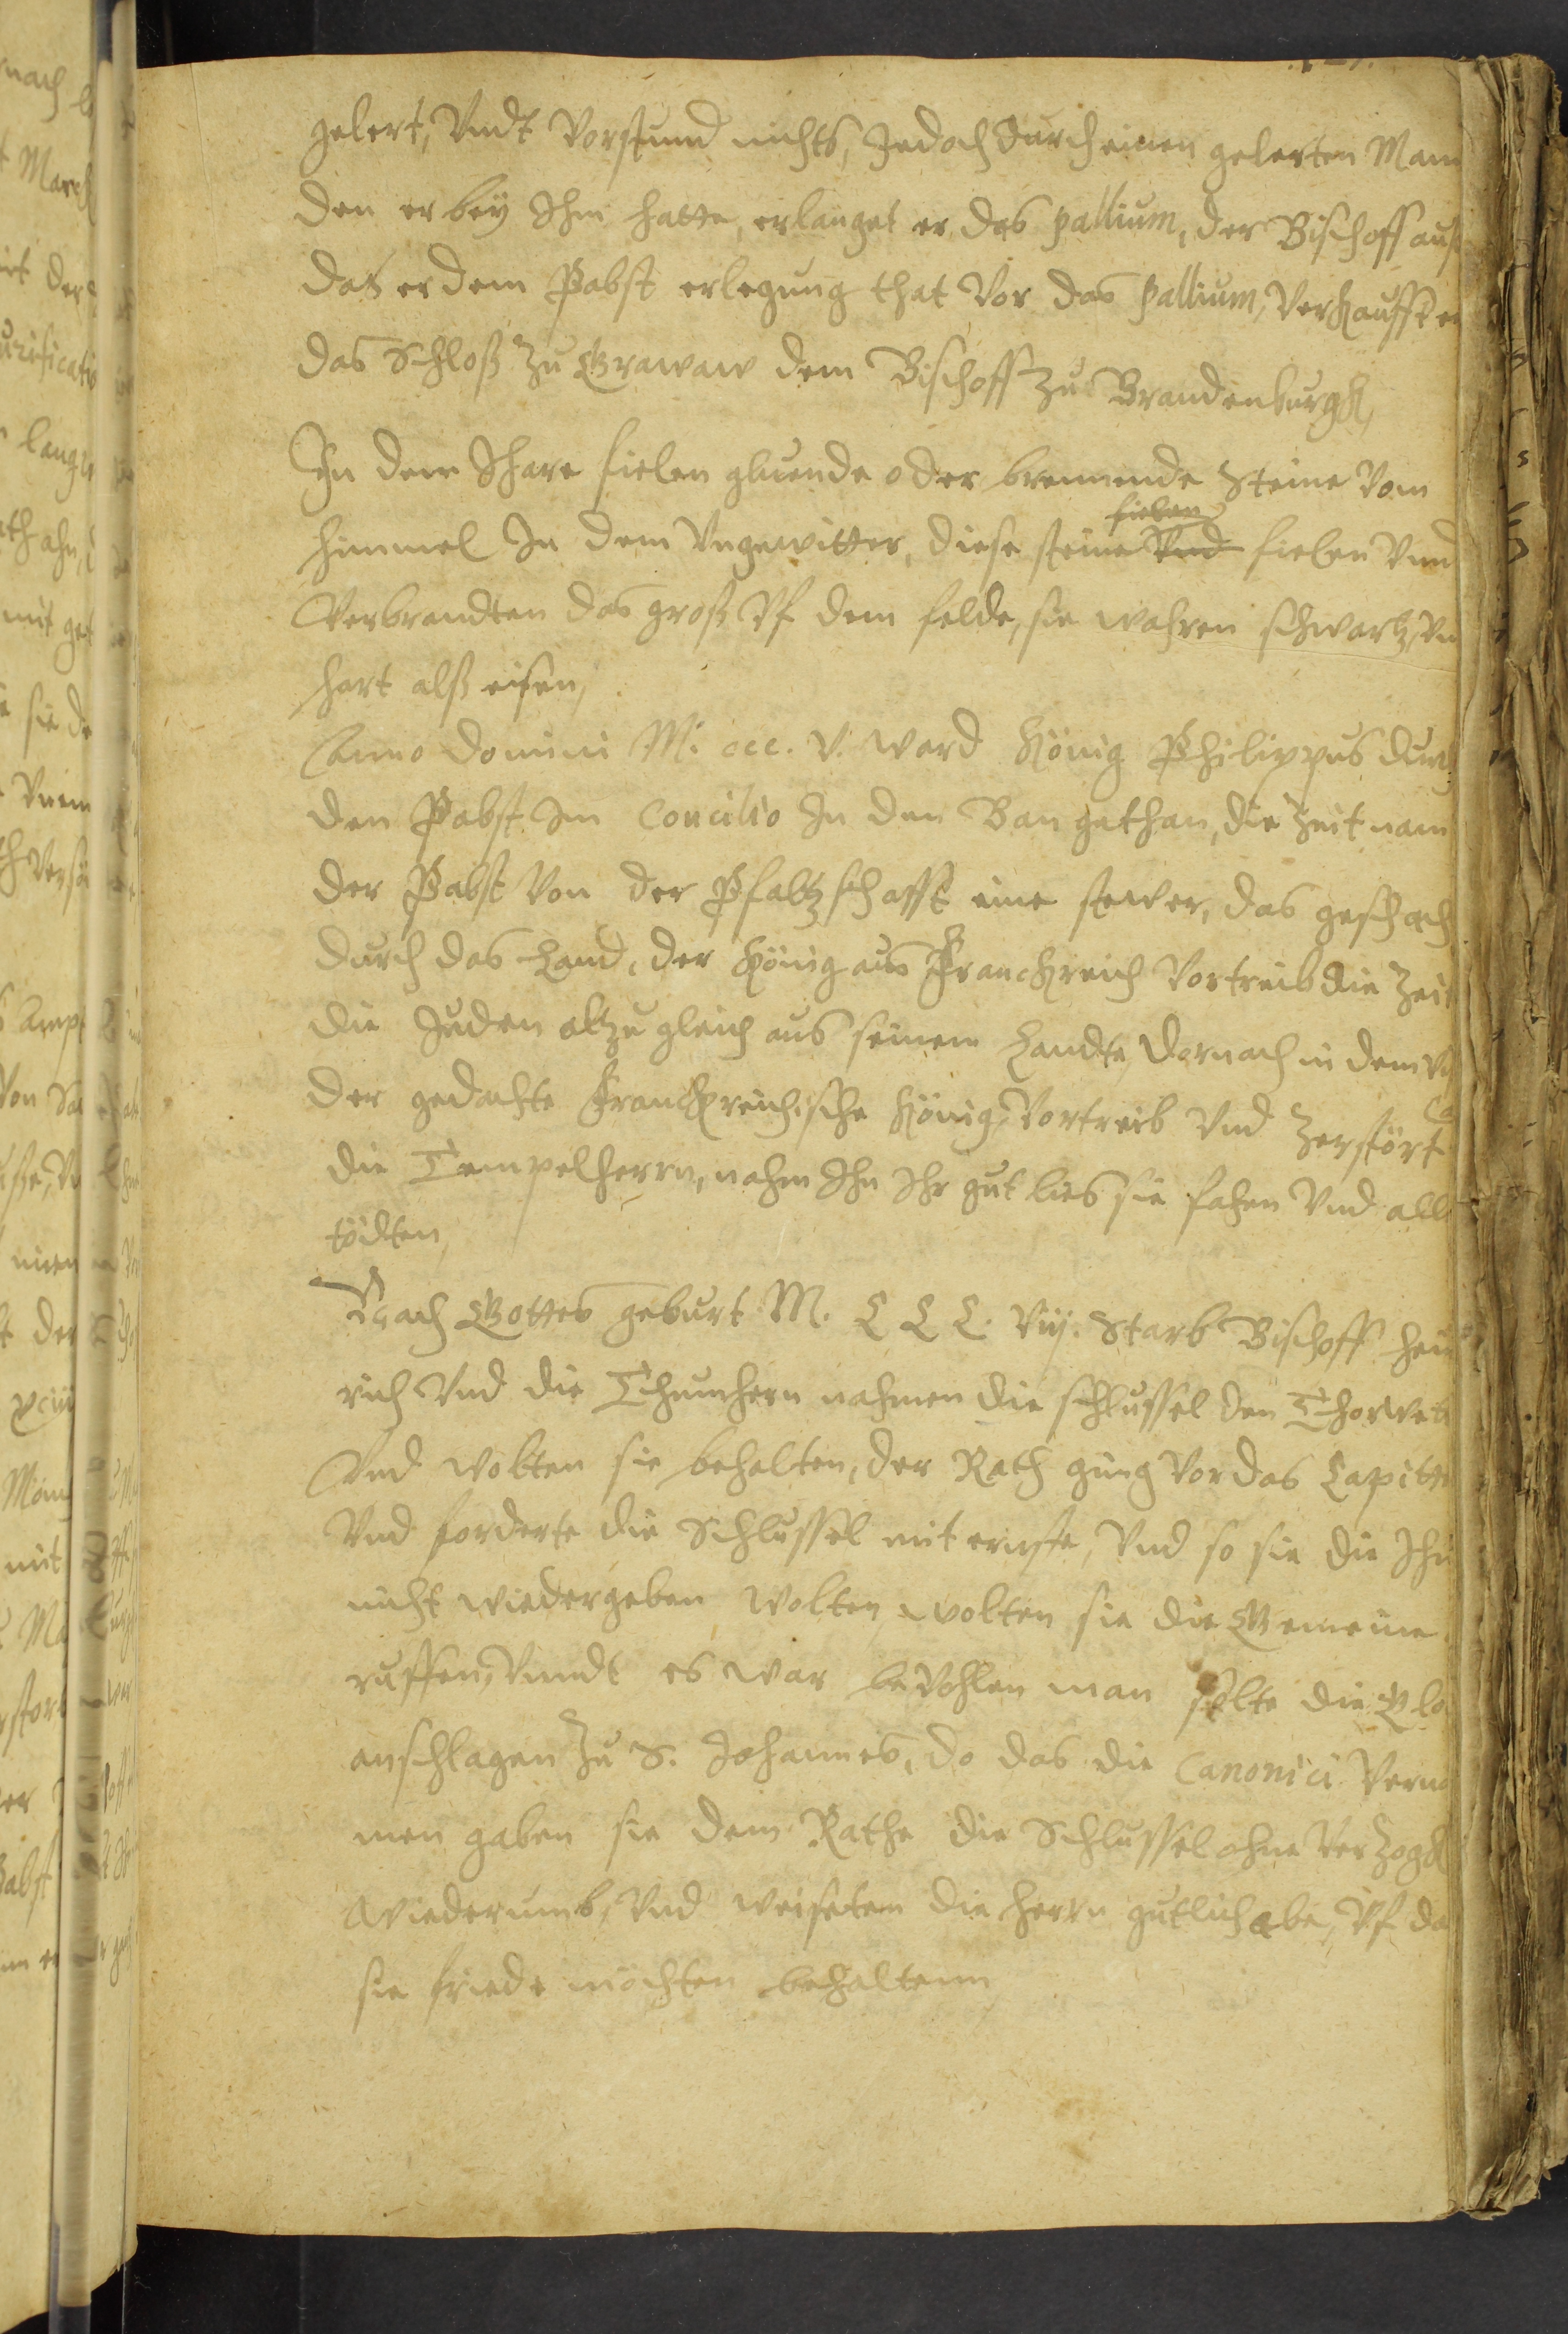 gelert, Vndt Vorstund nichts, Jedoch durch einen gelerten Man
den er bey Ihm hatte, erlanget er das pallium, der Bischoff auf
das er dem Pabst erlegung that Vor das pallium, Verkaufft er
das Schloß zu Grawaw dem Bischoff zu Brandenburgk,
In dem Ihare fielen gluende oder brennende Steine Vom
fielen
himmel In dem Vngewitter, diese steine Vnd fielen Vnd
Verbrandten das graß Vf dem felde, sie wahren schwartz, Vn
hart alß eisen,
Anno Domini M. ccc. V. ward König Philippus durch
den Pabst Im Concilio In den Ban gethan, die Zeit nam
der Pabst Von der Pfaltzschafft eine stewer, das geschach
durch das Land, der König aus Franckreich Vortreib die Zeit
die Juden altzu gleich aus seinem Landte, Dornach in dem
der gedachte Franckreichische König, Vortreib Vnd Zerstört
die Tempelherrn, nahm Ihn Ihr gut lies sie fahen Vnd alle
tödten,
Nach Gottes geburt M. C C C. Vij. Starb Bischoff Hein
rich Vnd die Thumhern nahmen die schlussel den Thorwet
Vnd wolten sie behalten, der Rath ging Vor das Capitt
Vnd forderte die Schlussel mit ernste, Vnd so sie die Ihn
nicht wiedergeben wolten, wolten sie die Gemeine
ruffen, Vnndt es war bevohlen man solte die Glo
anschlagen Zu S. Johannes, do das die Canonici Verno
men gaben sie dem Rathe die Schlussel ohne Verzogk
Wiederumb, Vnd weiseten die herrn gutlich abe, Vf da
sie friede möchten behaltenn